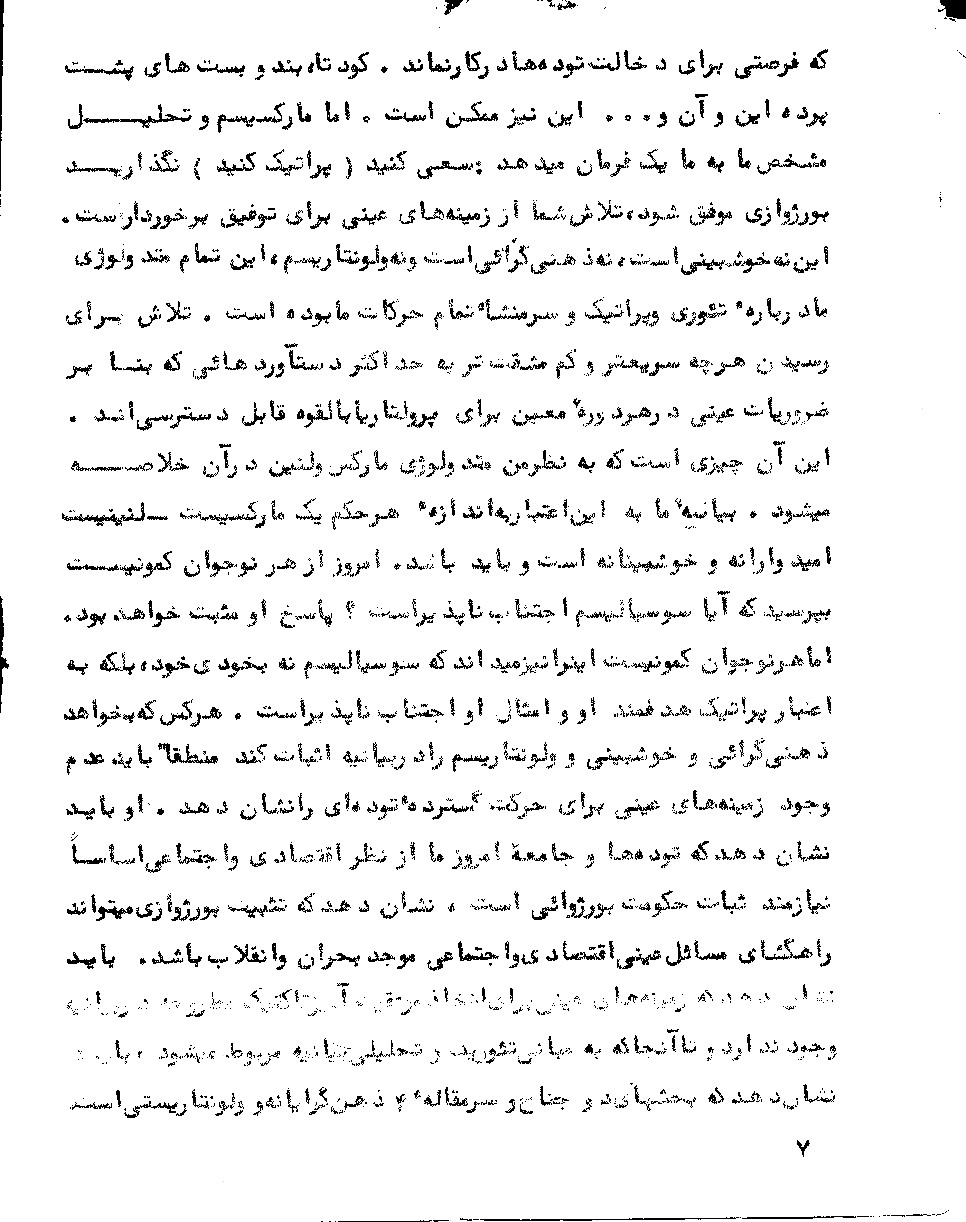 که فرصتی برای دخالت توده‌ها در کار نماند . کودتا، بند و بست های پشت
پرده این و آن و . . . این نیز ممکن است . اما مارکسیسم و تحلیل
مشخص ما به ما یک فرمان میدهد : سعی کنید ( پراتیک کنید ) نگذارید
بورژوازی موفق شود، تلاش شما از زمینه‌های عینی برای توفیق برخوردار است .
این نه خوشبینی است، نه ذهنی‌گرائی است و نه ولونتاریسم، این تمام متدولوژی
ما درباره ٔ تئوری و پراتیک و سرمنشاء تمام حرکات ما بوده است . تلاش برای
رسیدن هرچه سریعتر و کم مشقت تر به حداکثر دستآوردهائی که بنا بر
ضروریات عینی در هر دوره ٔ معین برای پرولتاریا بالقوه قابل دسترسی‌اند .
این آن چیزی است که به نظر من متدولوژی مارکس و لنین در آن خلاصه
میشود . بیانیه ٔ ما به این اعتبار به اندازه ٔ هر حکم یک مارکسیست ـ لنینیست
امیدوارانه و خوشبینانه است و باید باشد. امروز از هر نوجوان کمونیست
بپرسید که آیا سوسیالیسم اجتناب ناپذیر است ؟ پاسخ او مثبت خواهد بود.
اما هر نوجوان کمونیست اینرا نیز میداند که سوسیالیسم نه بخودی خود، بلکه به
اعتبار پراتیک هدفمند او و امثال او اجتناب ناپذیر است . هرکس که بخواهد
ذهنی‌گرائی و خوشبینی و ولونتاریسم را در بیانیه اثبات کند منطقا" باید عدم
وجود زمینه‌های عینی برای حرکت گسترده ٔ توده‌ای را نشان دهد . او باید
نشان دهد که توده‌ها و جامعهٔ امروز ما از نظر اقتصادی و اجتماعی اساساً
نیازمند ثبات حکومت بورژوائی است ، نشان دهد که تثبیت بورژوازی میتواند
راهگشای مسائل عینی اقتصادی و اجتماعی موجد بحران و انقلاب باشد. باید
نشان دهد که زمینه‌های عینی برای اتخاذ موفقیت آمیز تاکتیک مطروحه در بیانیه
وجود ندارد و تا آنجا که به مبانی تئوریک و تحلیلی بیانیه مربوط میشود ، باید
نشان دهد که بحثهای دو جناح و سرمقاله ٔ ۴ ذهن‌گرایانه و ولونتاریستی است
۷